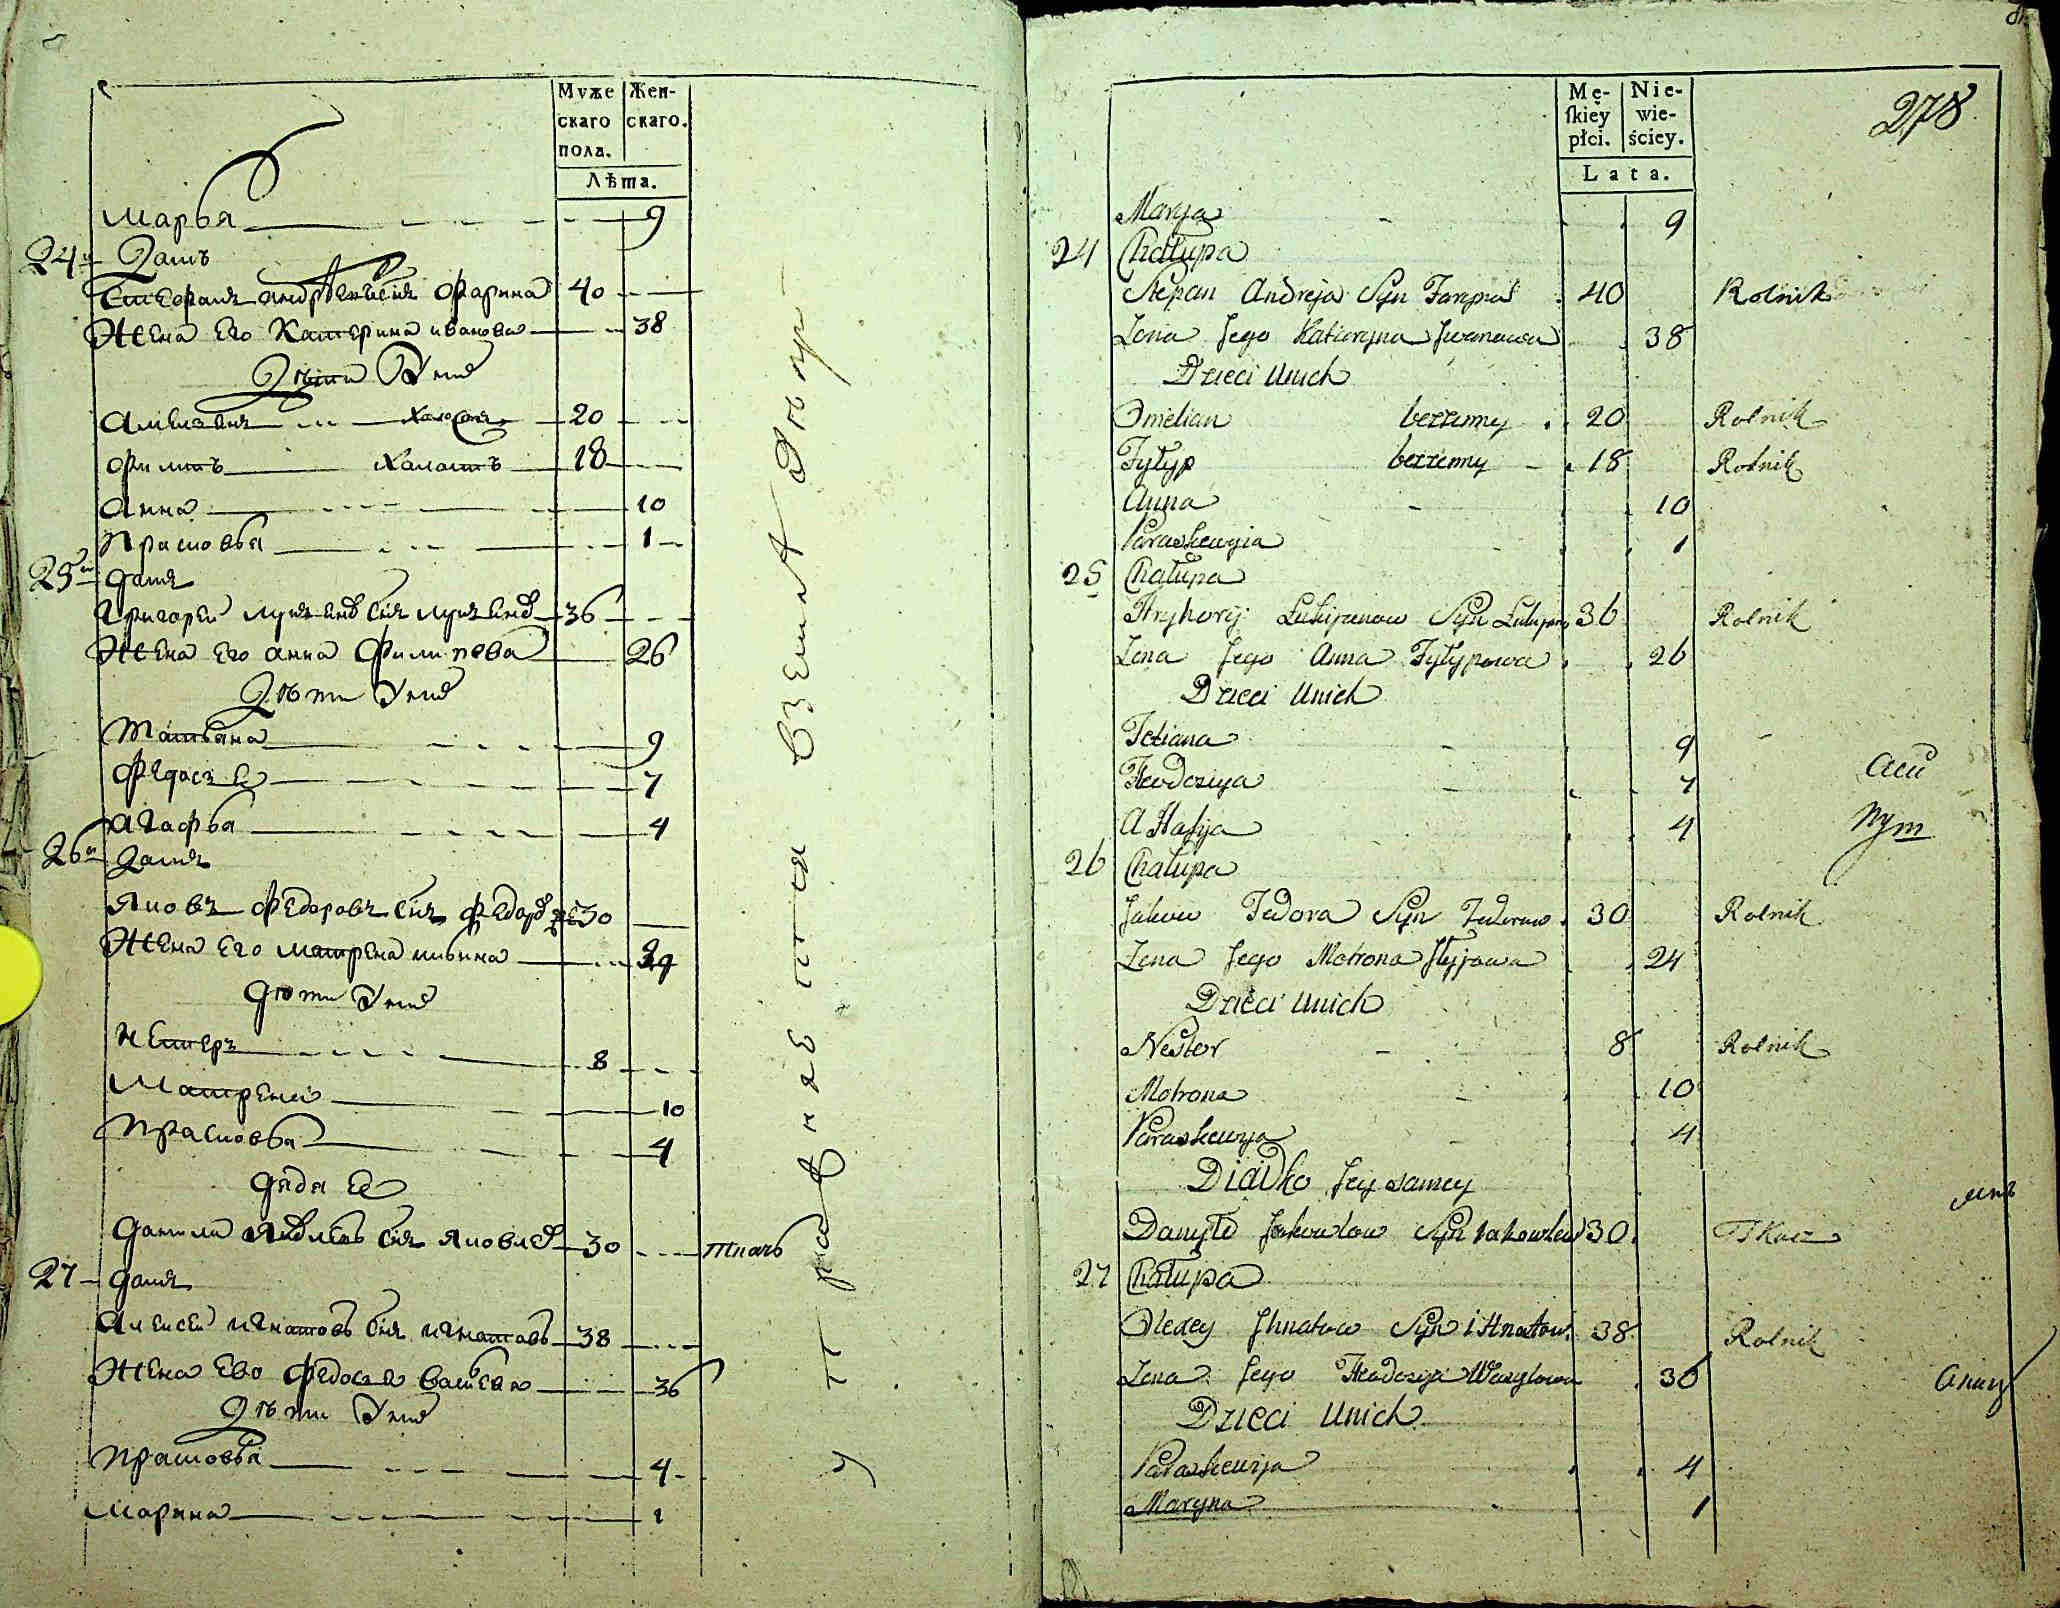 Муже
скаго
пола.
Жен-
скаго.
Лѣта.
Марья 9
24 Домъ
Степанъ Андреевъ сынъ Фарина 40
Жена его Катерина Иванова 38
Дѣти у нихъ
холостъ 20
Филипъ холостъ 18
Анна 10
Прасковья 1
25 Домъ
Григорей сынъ 36
Жена его Анна Филипова 26
Дѣти у нихъ
Татьяна 9
Федосья 7
Агафья 4
26 Домъ
Яковъ Федоровъ сынъ Федоровъ 30
Жена его Матрена 24
Дѣти у нихъ
Нестеръ 8
Матрена 10
Прасковья 4
Дядя ея
Данило Яковлевъ сынъ Яковлевъ 30 ткачь
27 Домъ
Алексей Игнатовъ сынъ Игнатовъ 38
Жена ево Федосья 36
Дѣти у нихъ
Прасковья 4
Марина 1
Mę-
ſkiey
płci.
Nie-
wie-
ściey.
Lata.
278
Marya 9
24 Chałupa
Stepan Andreja Syn 40 Rolnik
Żona Jego Kateryna Iwanowa 38
Dzieci Unich
Omelian bezzenny 20 Rolnik
Fyłyp bezzenny 18 Rolnik
Anna 10
Paraskewija 1
25 Chałupa
Hryhorij Łukijanow Syn 36 Rolnik
Żona Jego Anna Fyłypowa 26
Dzieci Unich
Tetiana 9
Feodosiya 7
AHafija 4
26 Chałupa
Jakow Fedora Syn Fedorow 30 Rolnik
Żona Jego Motrona 24
Dzieci Unich
Nestor 8 Rolnik
Motrona 10
Paraskewya 4
Diadko Jey samey
Danyło Jakowlow Syn Jakowlew 30 Tkacz
27 Chałupa
Olexey Ihnatow Syn iHnatow 38 Rolnik
Żona Jego Feodozija Wasylowa 36
Dzieci Unich
Paraskewija 4
Maryna 1